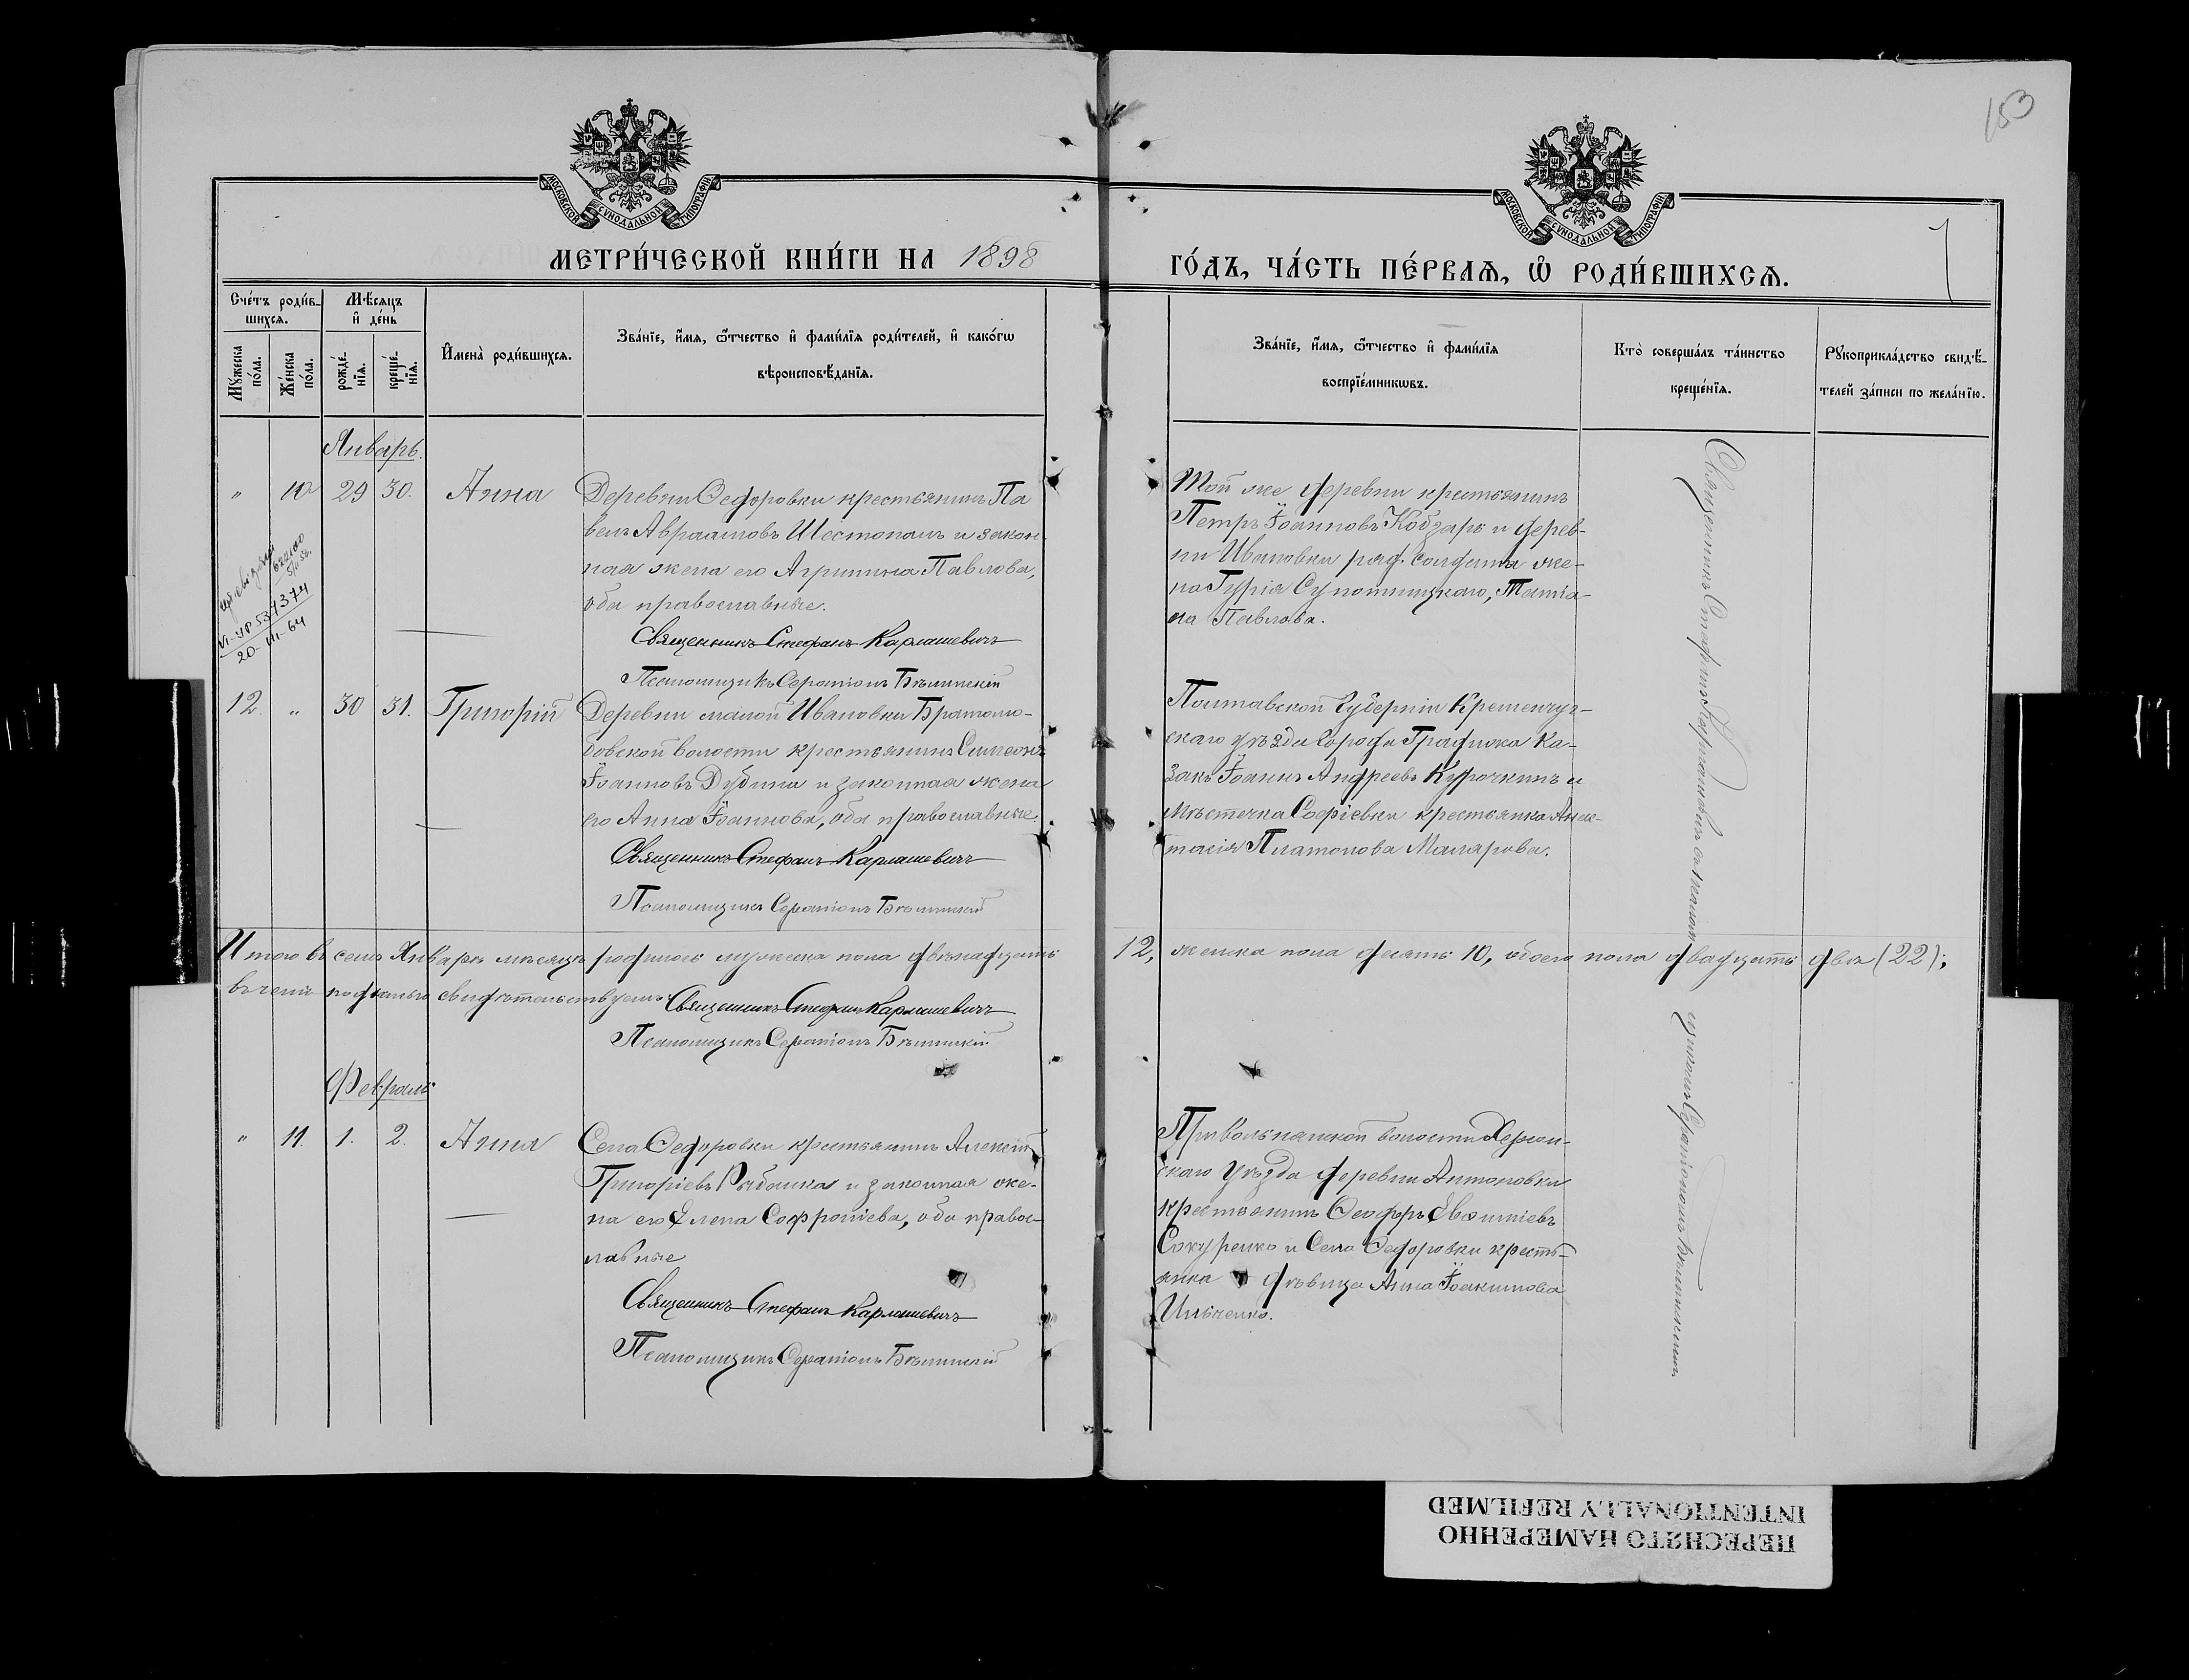 153
МОСКОВСКОЙ СѴНОДАЛЬНОЙ ТИПОГРАФІИ
МОСКОВСКОЙ СѴНОДАЛЬНОЙ ТИПОГРАФІИ
МЕТРИ́ЧЕСКОЙ КНИ́ГИ НА 1898
ГО́ДЪ, ЧА́СТЬ ПЕ́РВАѦ, Ѽ РОДИ́ВШИХСѦ.
Сче́тъ роди́в-
шихсѧ.
Мꙋ́жеска
по́ла.
Же́нска
по́ла.
Мѣ́сяцъ
и҆ де́нь
рожде́-
нїѧ.
креще́-
нїѧ.
И҆мена̀ роди́вшихсѧ.
Зва́нїе, и҆́мѧ, ѻ҆́тчество и҆ фами́лїѧ роди́телей, и҆ како́гѡ
вѣроисповѣ́данїѧ.
Зва́нїе, и҆́мѧ, ѻ҆́тчество и҆ фами́лїѧ
воспрїе́мникѡвъ.
Кто̀ соверша́лъ та́инство
креще́нїѧ.
Рꙋкоприкла́дство свидѣ́-
телей за́писи по жела́нїю.
Январь.
" 10 29 30. Анна
Деревни Ѳедоровки крестьянинъ Па
велъ Авраамовъ Шестопалъ и закон-
ная жена его Агрипина Павлова,
оба православные.
Священникъ Стефанъ Карлашевичъ
Псаломщикъ Серапіонъ Бѣлинскій
Той же деревни крестьянинъ
Петръ Іоанновъ Кобзарь и дерев-
ни Ивановки ряд. солдата же-
на Гурія Супотницкаго, Татіа-
на Павлова.
VI-ЯР 537374
20-VII-64
12. " 30 31. Григорій
Деревни малой Ивановки Братолю-
бовской волости крестьянинъ Симеонъ
Іоанновъ Дубина и законная жена
его Анна Іоаннова, оба православные.
Священникъ Стефанъ Карлашевичъ
Псаломщикъ Серапіонъ Бѣлинскій
Полтавской Губерніи Кременчуг-
скаго уѣзда города Градижска Ка-
закъ Іоаннъ Андреевъ Курочкинъ и
мѣстечка Софіевки крестьянка Анас-
тасія Платонова Малярова.
Итого въ семъ Январѣ мѣсяцѣ родилось мужеска пола двѣнадцать
12, женска пола десять 10, обоего пола двадцать два (22);
въ чемъ подписью свидѣтельствуемъ Священникъ Стефанъ Карлашевичъ
Псаломщикъ Серапіонъ Бѣлинскій
Февраль
" 11. 1. 2. Анна
Села Ѳедоровки крестьянинъ Алексій
Григоріевъ Рыбалка и законная же-
на его Елена Софроніева, оба правос-
лавные
Священникъ Стефанъ Карлашевичъ
Псаломщикъ Серапіонъ Бѣлинскій
Привольнянской волости Херсон-
скаго уѣзда деревни Антоновки
крестьянинъ Ѳеодоръ
Сокуренко и Села Ѳедоровки кресть-
янка дѣвица Анна Іоакимова
Ильченко.
Священникъ Стефанъ Карлашевичъ съ псаломщикомъ Серапіономъ Бѣлинскимъ
ПЕРЕСНЯТО НАМЕРЕННО
INTENTIONALLY REFILMED